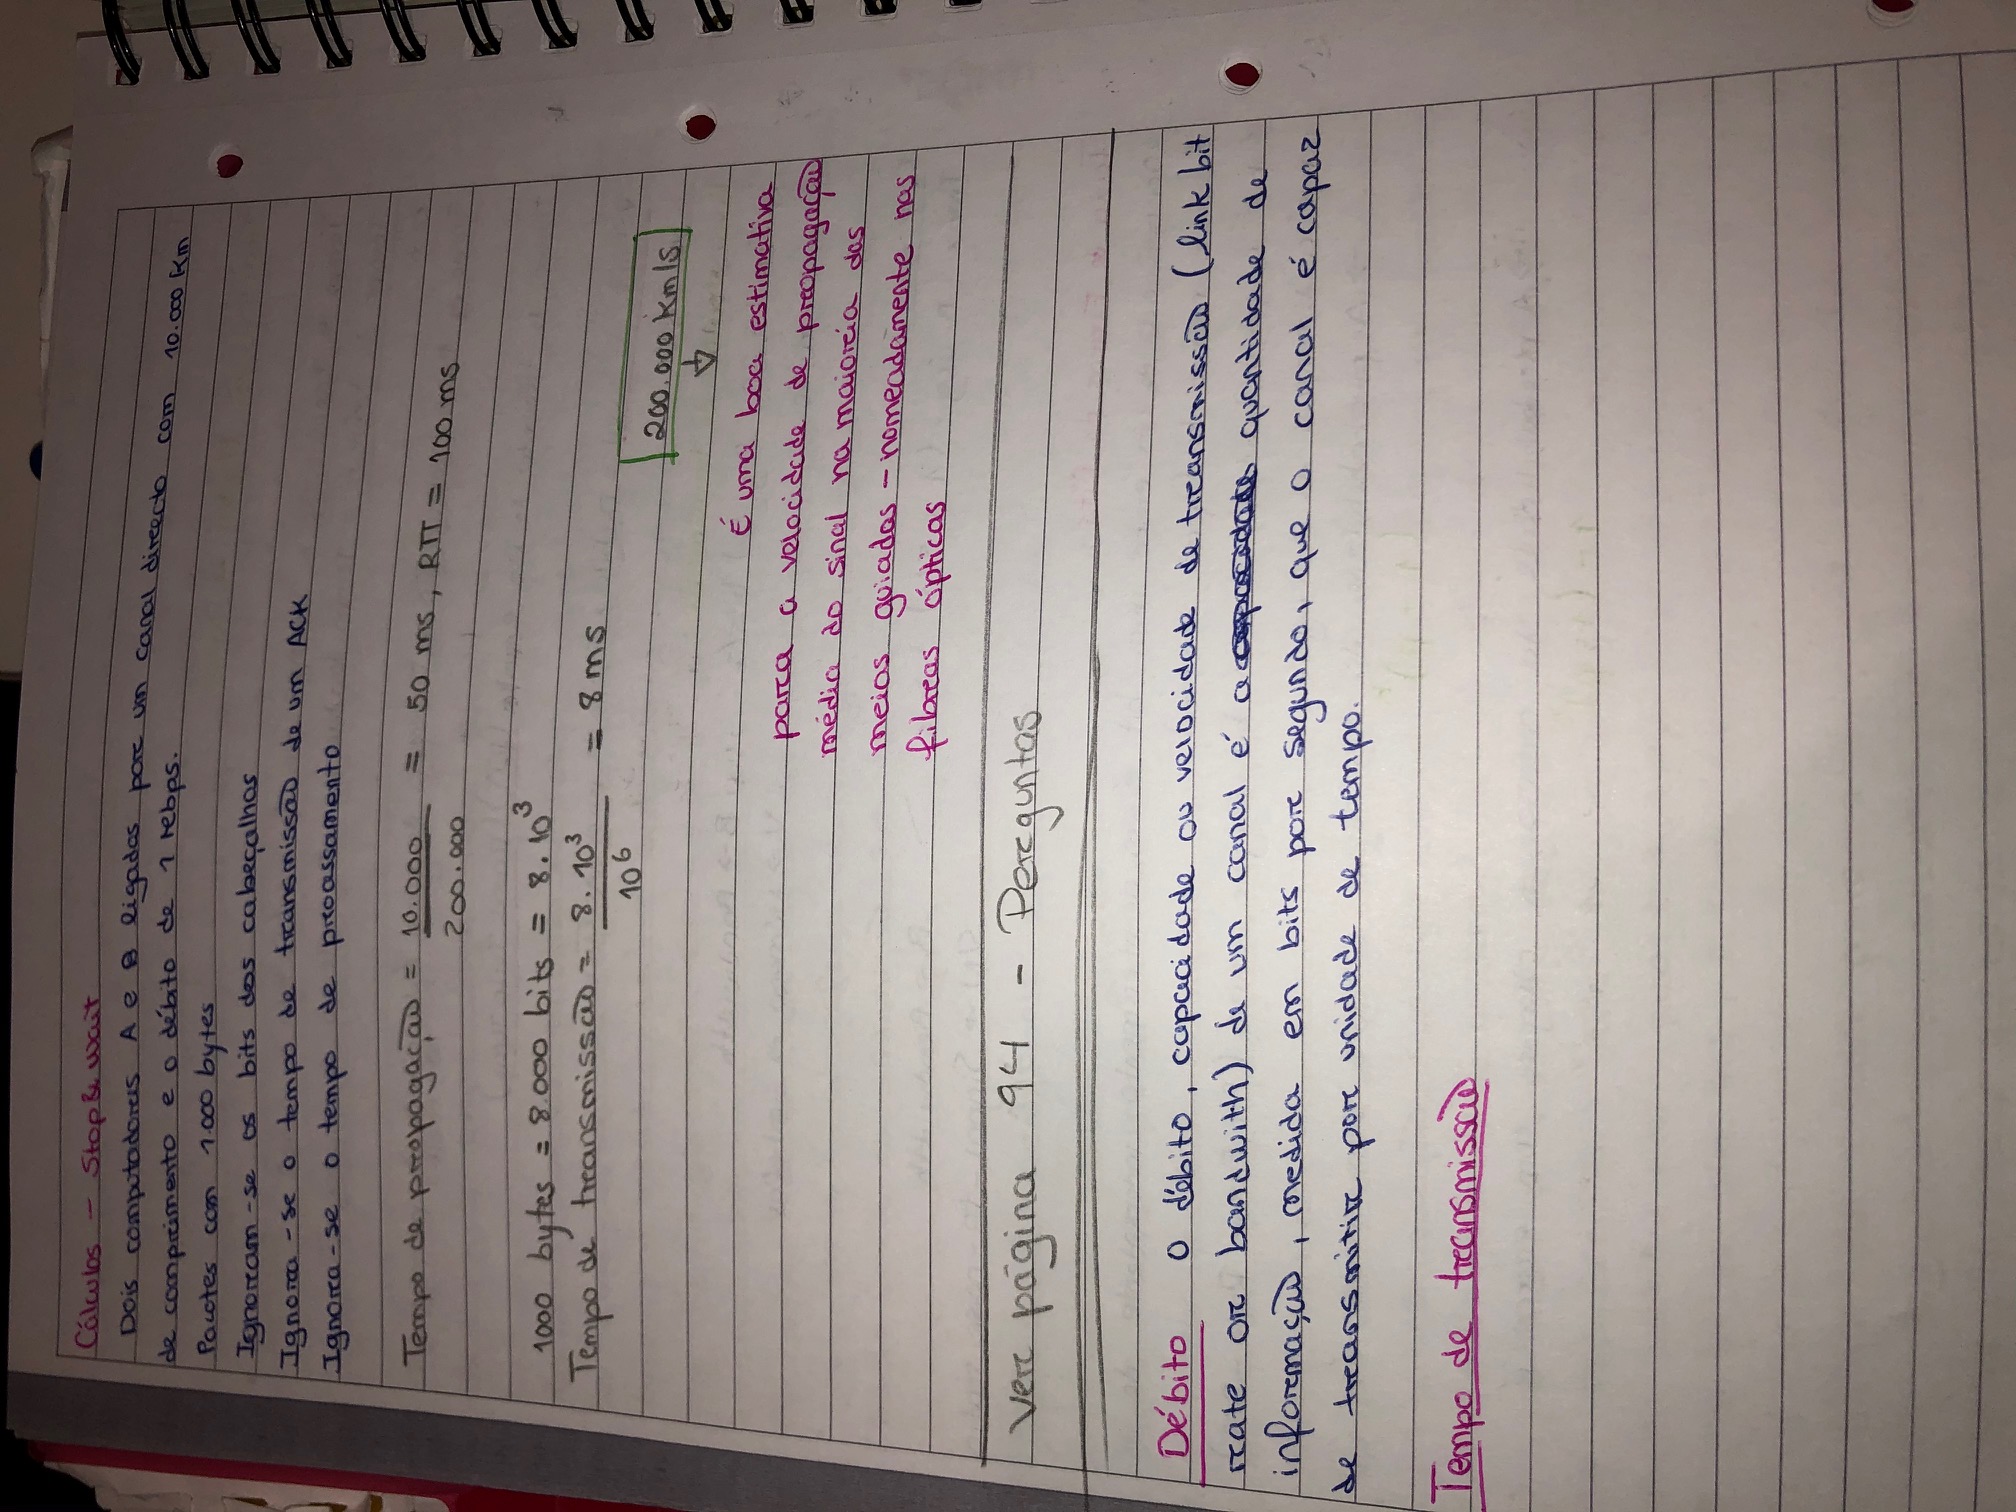 Cálculos - Stop & wait
Dois computadores A e B ligados por um canal directo com 10.000 Km
de comprimento e o débito de 1 Mbps.
Pacotes com 1.000 bytes
Ignoram-se os bits dos cabeçalhos
Ignora-se o tempo de transmissão de um ACK
Ignora-se o tempo de proassamento
Tempo de propagação = 10.000 / 200.000 = 50 ms, RTT = 100 ms
1000 bytes = 8.000 bits = 8.10³
Tempo de transmissão = 8.10³ / 10⁶ = 8 ms
200.000 Km/s
↓
É uma boa estimativa
para a velocidade de propagação
média do sinal na maioria dos
meios guiados - nomeadamente nas
fibras ópticas
Ver página 94 - Perguntas
Débito O débito, capacidade ou velocidade de transmissão (link bit
rate or bandwith) de um canal é a quantidade de
informação, medida em bits por segundo, que o canal é capaz
de transmitir por unidade de tempo.
Tempo de transmissão